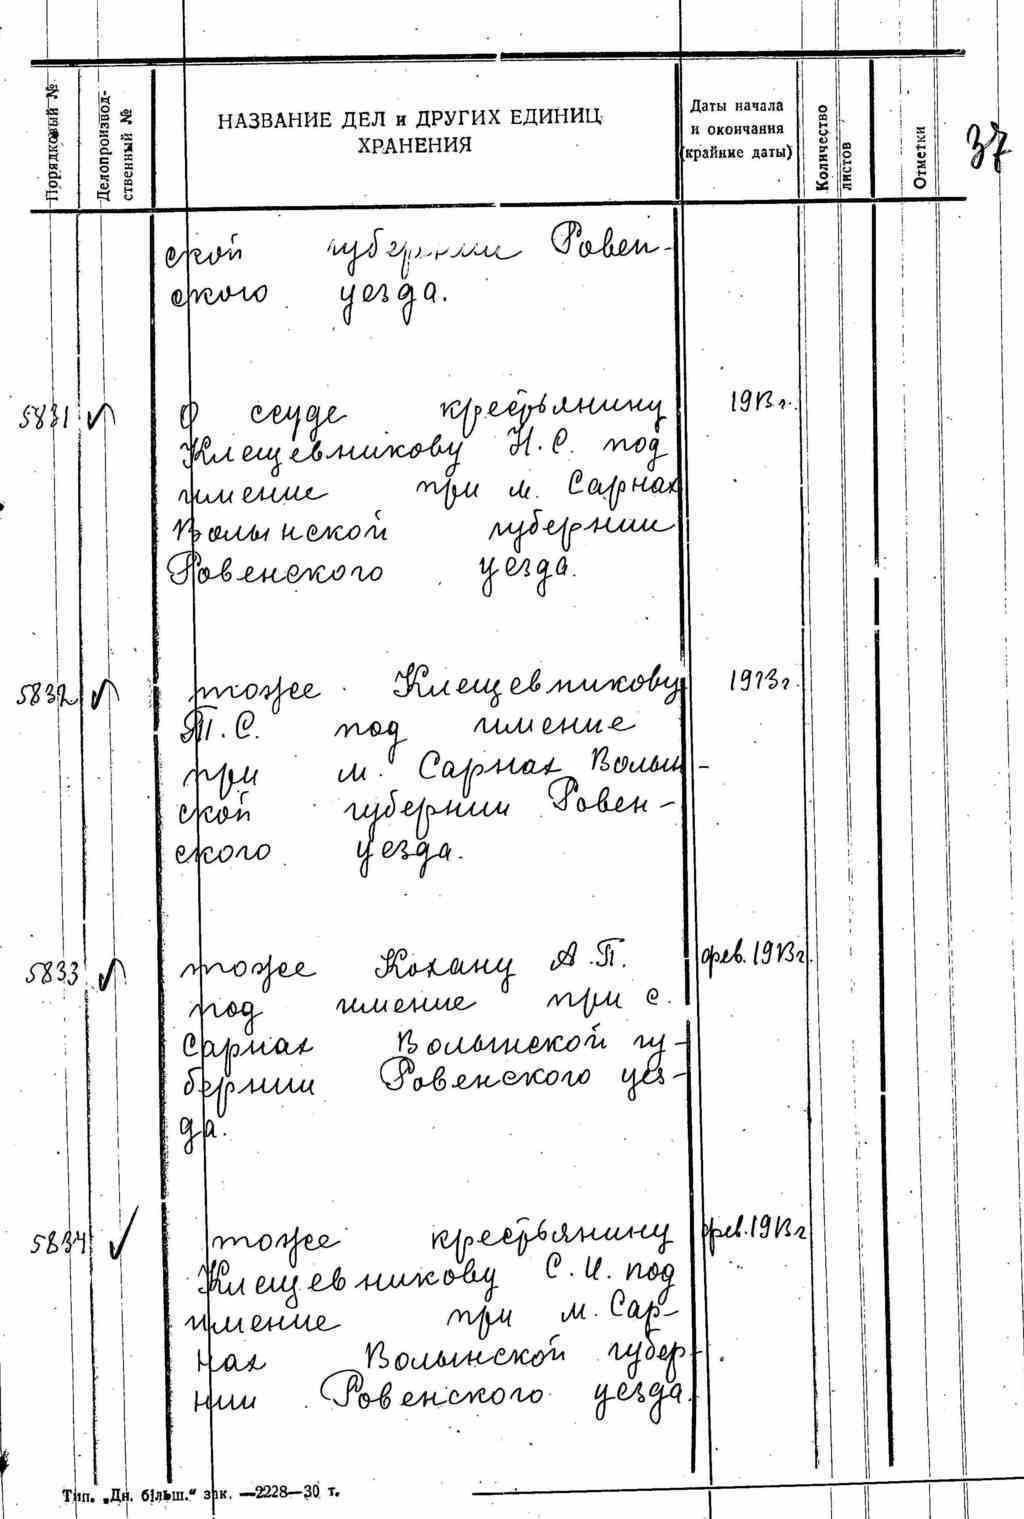 37
Порядковый №
Делопроизвод-
ственный №
НАЗВАНИЕ ДЕЛ и ДРУГИХ ЕДИНИЦ
ХРАНЕНИЯ
Даты начала
и окончания
(крайние даты)
Количество
листов
Отметки
ской губернии Ровен-
ского уезда.
5831 О ссуде крестьянину 1913 г.
Клещевникову Н. С. под
имение при м. Сарнах
Волынской губернии
Ровенского уезда.
5832 тоже Клещевникову 1913 г.
Т. С. под имение
при м. Сарнах Волын-
ской губернии Ровен-
ского уезда.
5833 тоже Кохану А. П. фев. 1913 г.
под имение при с.
Сарнах Волынской гу-
бернии Ровенского уез-
да.
5834 тоже крестьянину фев. 1913 г.
Клещевникову С. И. под
имение при м. Сар-
нах Волынской губер-
нии Ровенского уезда.
Тип. „Дн. більш." зак. —2228—30 т.